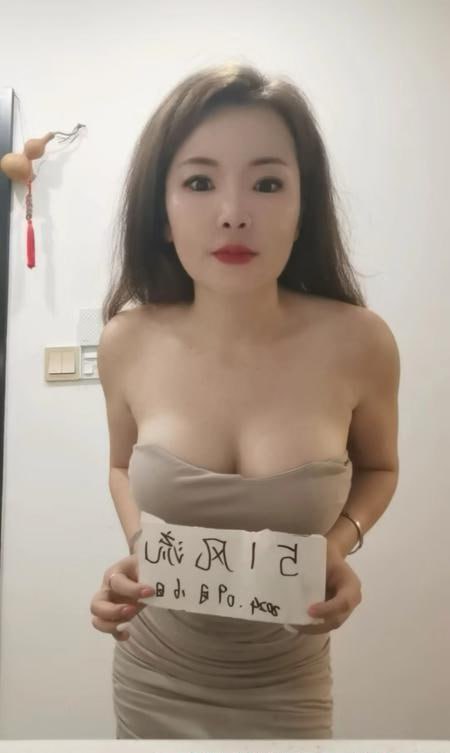 51风流
2024.09月16日